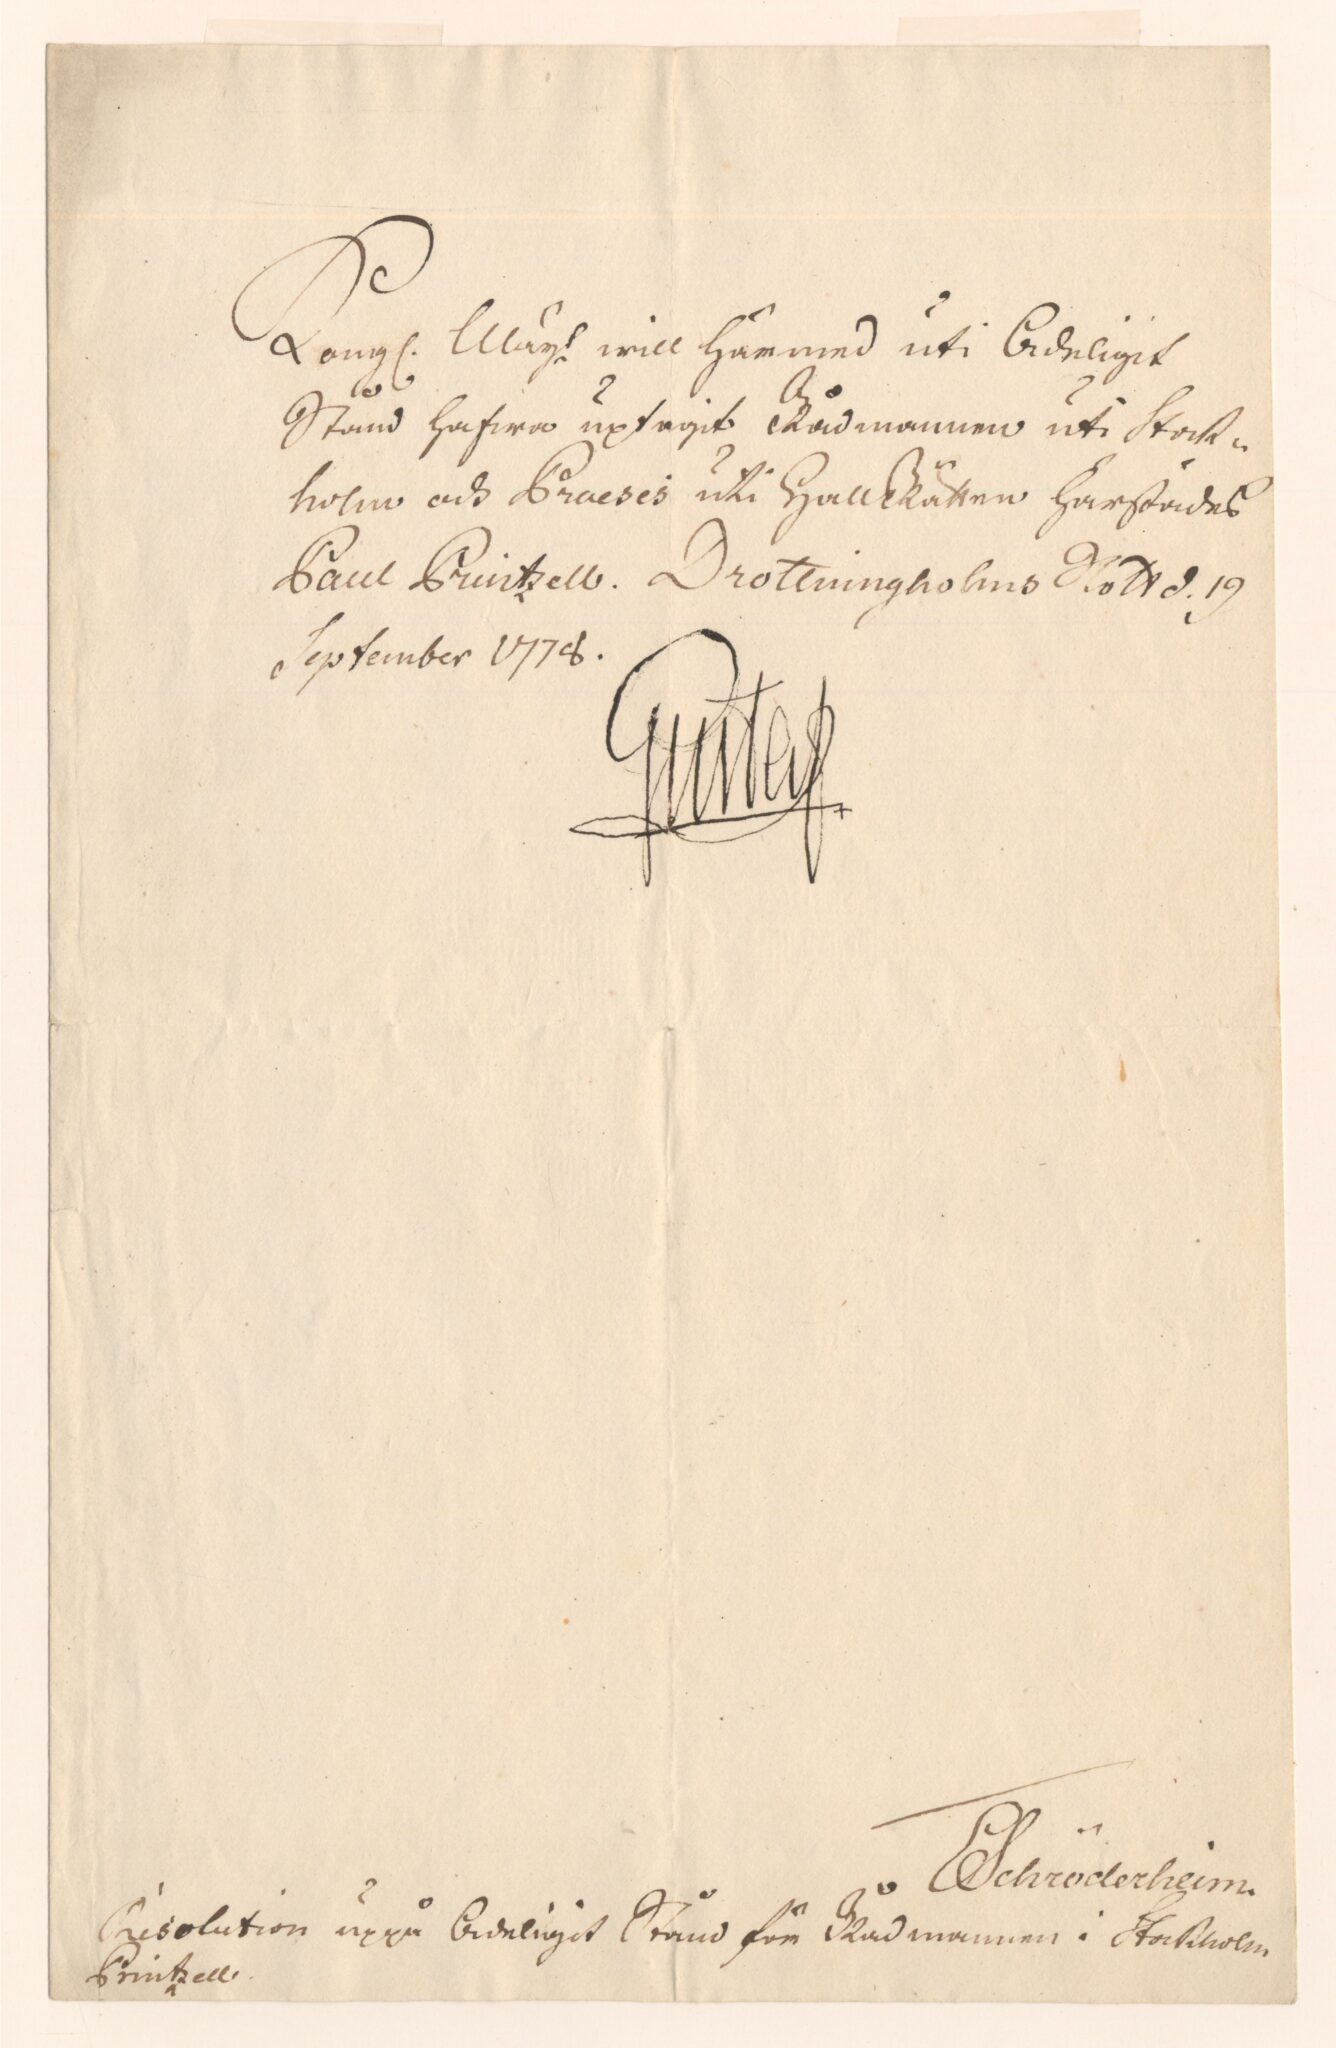 Kongl. Maij:t will härmed uti Adeligit
Stånd hafwa uptagit Rådmannen uti Stock-
holm och Præses uti HallRätten härstädes
Paul Printzell. Drottningholms Slott d. 19
September 1778.
Gustaf
ESchröderheim.
Resolution uppå Adeligit Stånd för Rådmannen i Stockholm
Printzell.